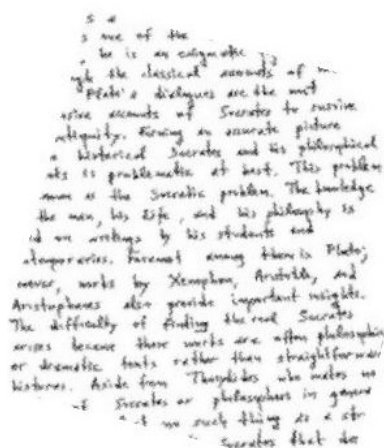 s a
s one of the
he is an enigmatic
the classical accounts of
Plato's dialogues are the most
accounts of Socrates to survive
antiquity. Forming an accurate picture
historical Socrates and his philosophical
is problematic at best. This problem
as the Socratic problem. The knowledge
the man, his life, and his philosophy is
on writings by his students and
Foremost among them is Plato;
works by Xenophon, Aristotle, and
Aristophanes also provide important insights.
The difficulty of finding the real Socrates
arises because these works are often
or dramatic texts rather than
histories. Aside from who makes no
Socrates or philosophers in
no such thing as a
Socrates that